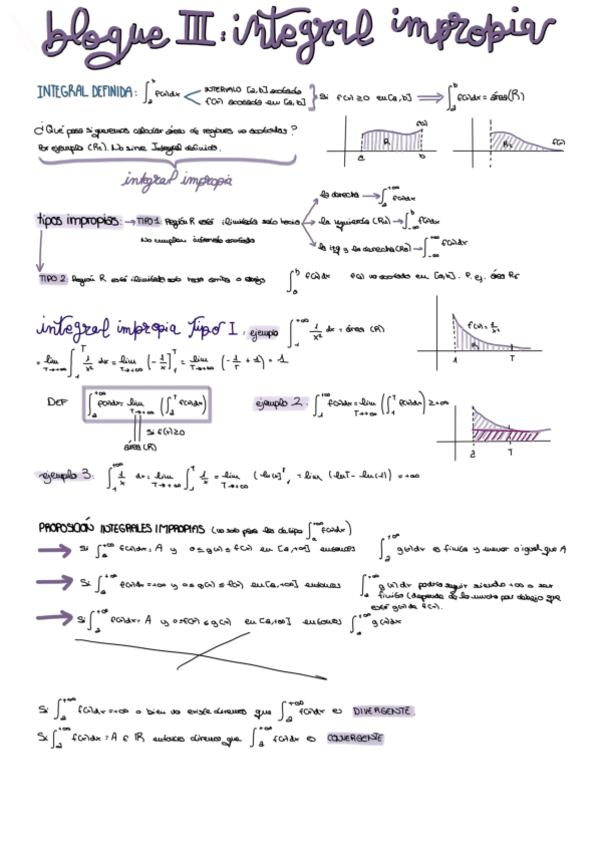 bloque III: integral impropia
INTEGRAL DEFINIDA: ∫_a^b f(x)dx < INTERVALO [a,b] acotado
f(x) acotada en [a,b]
Si f(x) ≥ 0 en [a,b] ⟹ ∫_a^b f(x)dx = área(R)
¿Qué pasa si queremos calcular áreas de regiones no acotadas?
Por ejemplo (R₁). No sirve Integral definida.
a R b f(x)
R₁ f(x)
integral impropia
tipos impropios: → TIPO 1: Región R está ilimitada solo hacia
No cumplen intervalo acotado
la derecha → ∫_a^{+∞} f(x)dx
la izquierda (R₂) → ∫_{-∞}^b f(x)dx
la izq y la derecha (R₃) → ∫_{-∞}^{+∞} f(x)dx
TIPO 2: Región R está ilimitada solo hacia arriba o abajo ∫_a^b f(x)dx f(x) no acotada en [a,b]. P. ej. área R₅
integral impropia Tipo I: ejemplo ∫_1^{+∞} 1/x² dx = área (R)
= lim_{T→+∞} ∫_1^T 1/x² dx = lim_{T→+∞} (-1/x]_1^T = lim_{T→+∞} (-1/T + 1) = 1
f(x) = 1/x²
1 T
DEF ∫_a^{+∞} f(x)dx = lim_{T→+∞} (∫_a^T f(x)dx)
Si f(x) ≥ 0
área(R)
ejemplo 2: ∫_1^{+∞} f(x)dx = lim_{T→+∞} (∫_1^T f(x)dx)
a T
ejemplo 3: ∫_1^{+∞} 1/x dx = lim_{T→+∞} ∫_1^T 1/x = lim_{T→+∞} (ln(x)]_1^T = lim (lnT - ln(1)) = +∞
PROPOSICIÓN INTEGRALES IMPROPIAS (no solo para las de tipo ∫_a^{+∞} f(x)dx)
→ Si ∫_a^{+∞} f(x)dx = A y 0 ≤ g(x) ≤ f(x) en [a,+∞] entonces ∫_a^{+∞} g(x)dx es finita y menor o igual que A
→ Si ∫_a^{+∞} f(x)dx = +∞ y 0 ≤ g(x) ≤ f(x) en [a,+∞] entonces ∫_a^{+∞} g(x)dx podría seguir siendo +∞ o ser
finita (depende de lo mucho por debajo que
esté g(x) de f(x).
→ Si ∫_a^{+∞} f(x)dx = A y 0 ≤ f(x) ≤ g(x) en [a,+∞] entonces ∫_a^{+∞} g(x)dx
Si ∫_a^{+∞} f(x)dx = +∞ o bien no existe diremos que ∫_a^{+∞} f(x)dx es DIVERGENTE
Si ∫_a^{+∞} f(x)dx = A ∈ ℝ entonces diremos que ∫_a^{+∞} f(x)dx es CONVERGENTE